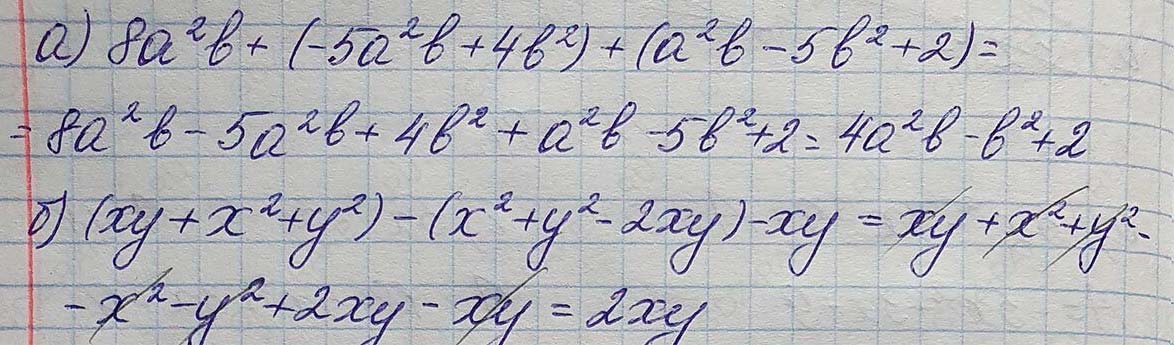 а) 8a²b + (-5a²b + 4b²) + (a²b - 5b² + 2) =
= 8a²b - 5a²b + 4b² + a²b - 5b² + 2 = 4a²b - b² + 2
б) (xy + x² + y²) - (x² + y² - 2xy) - xy = xy + x² + y² -
- x² - y² + 2xy - xy = 2xy